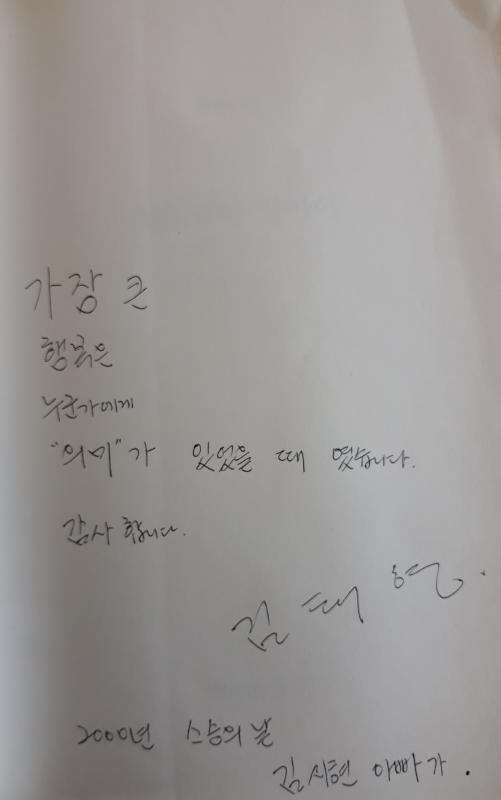 가장 큰
행복은
누군가에게
"의미"가 있었을 때 였습니다.
감사합니다.
김태현.
2000년 스승의 날
김시현 아빠가.